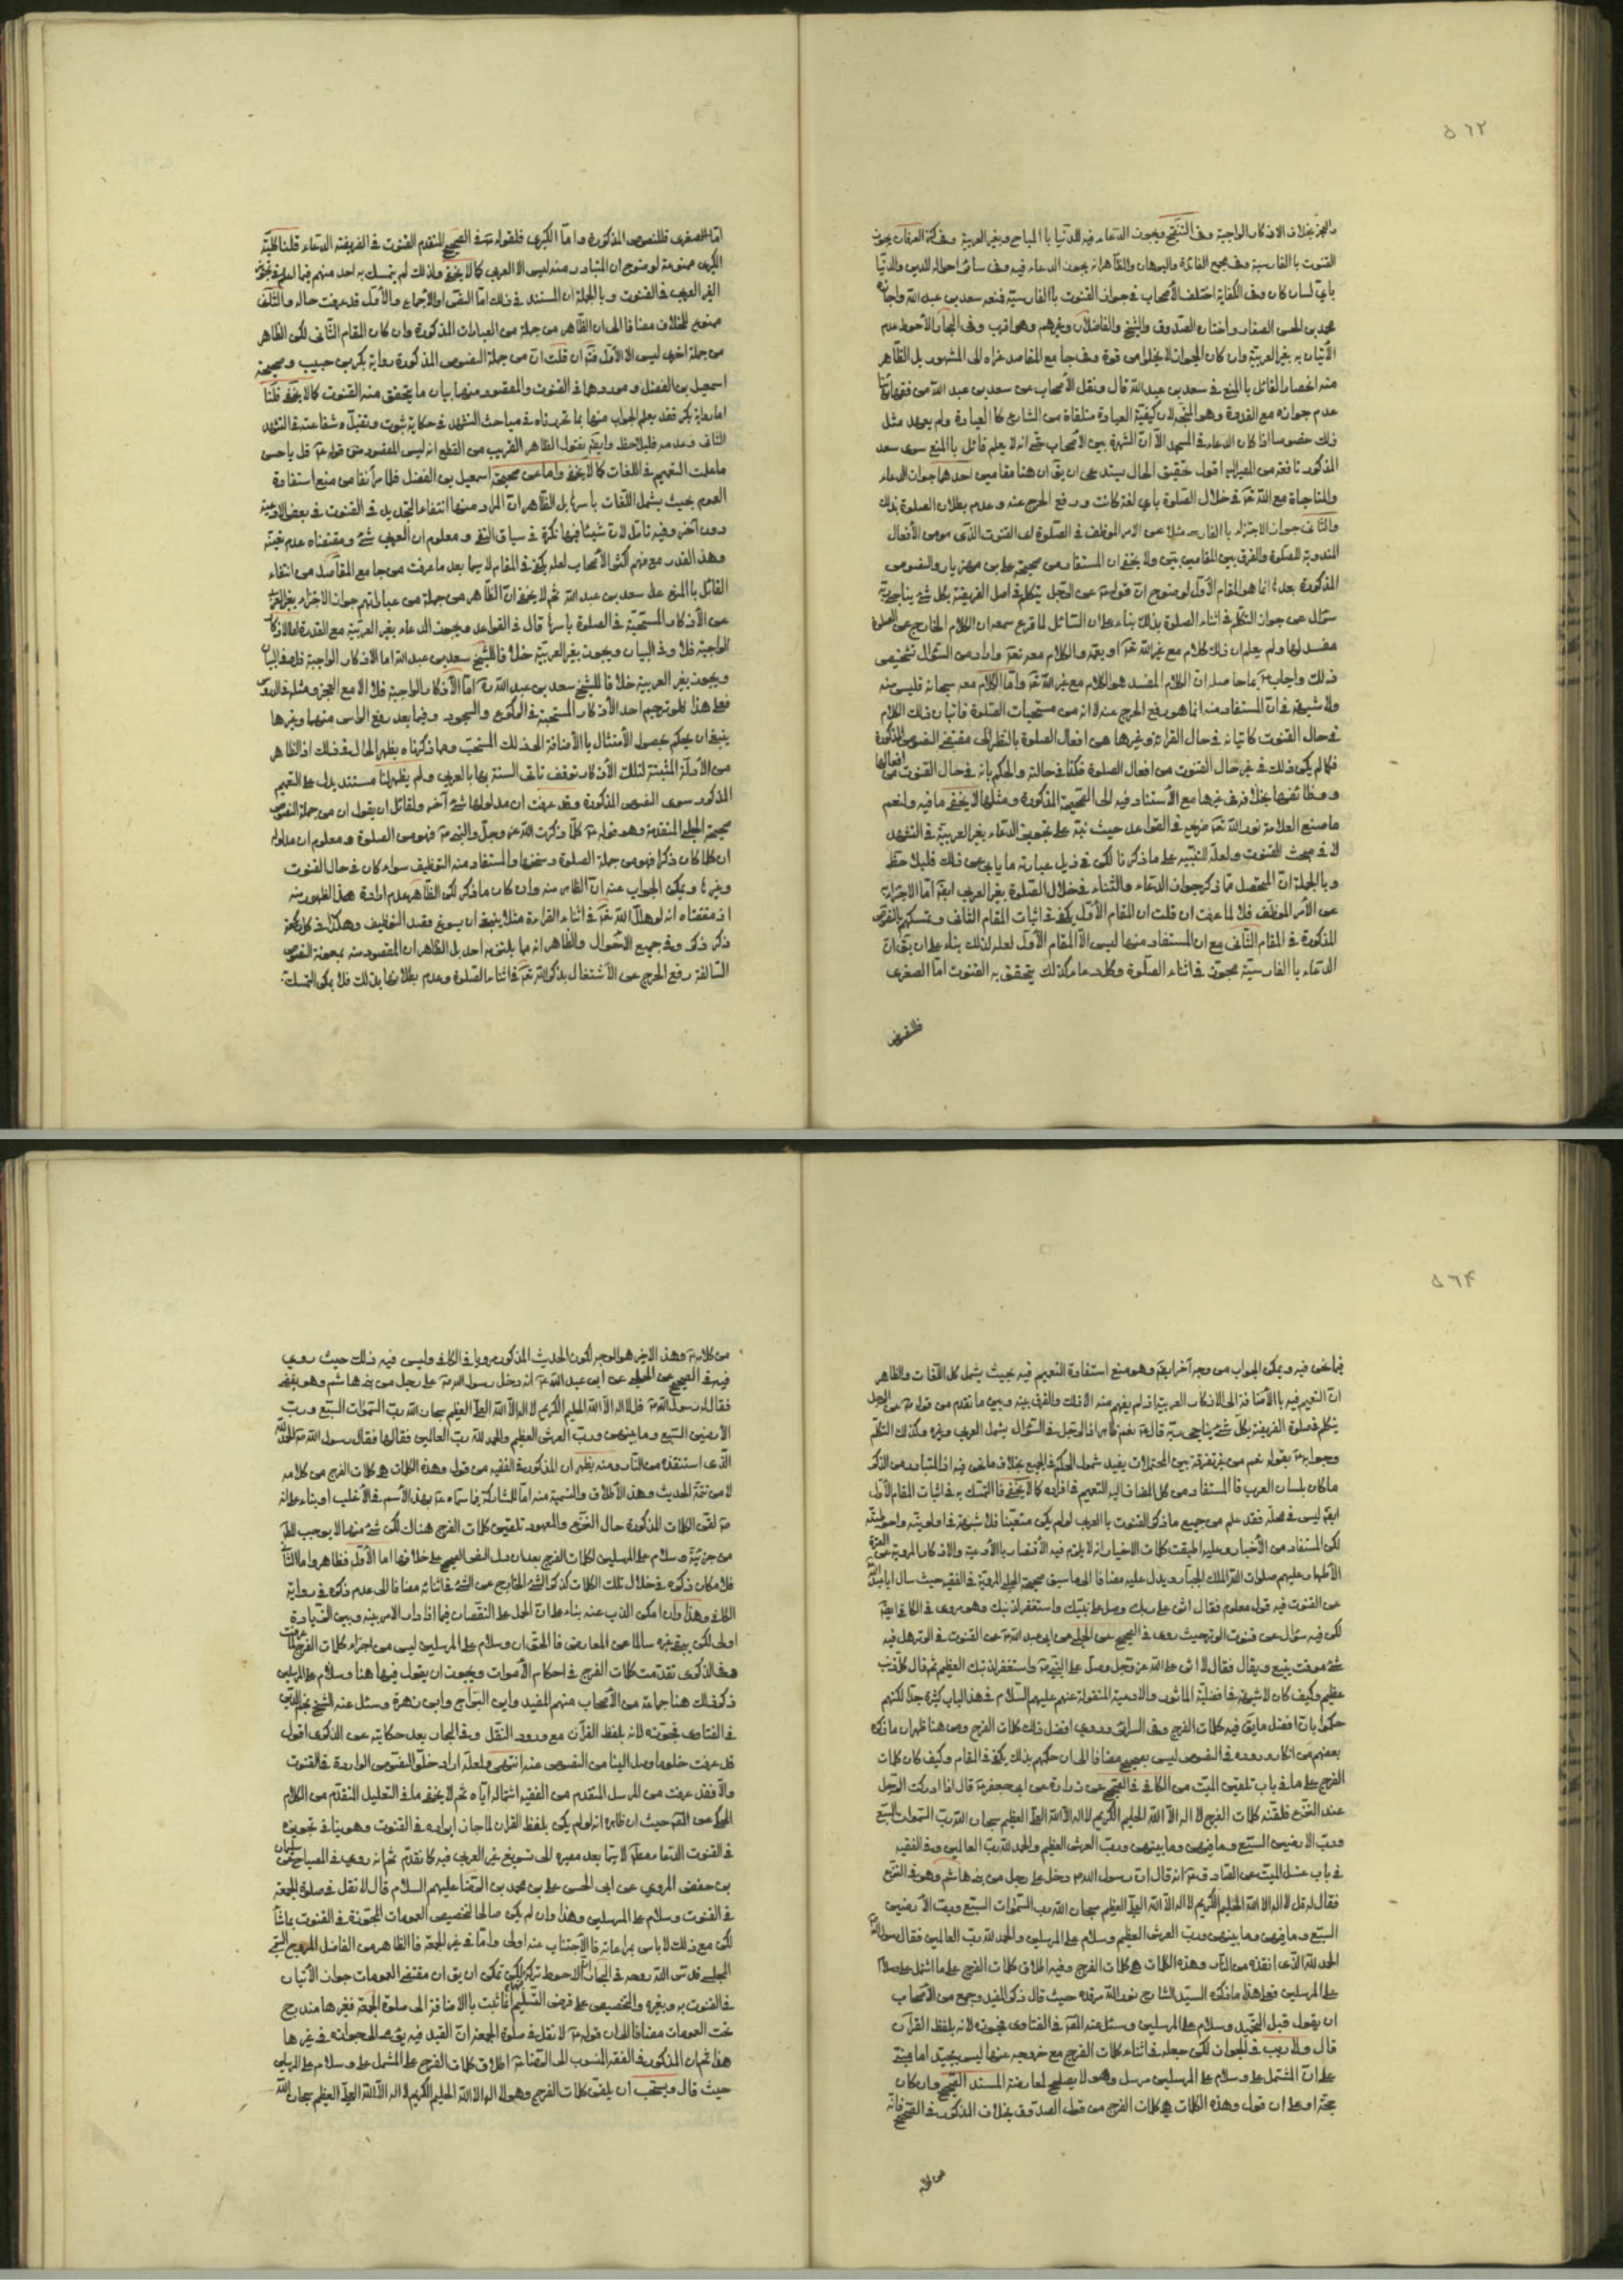 ٥٦٢
والعجز بخلاف الاذكار الواجبة وفى التنقيح ويجوز الدعاء فيه للدنيا با المباح وبغير العربية وفى العرفان يجوز
القنوت با الفارسية وفى مجمع الفائدة والبرهان والظاهر انه يجوز الدعاء فيه وفى سائر احواله للدين والدنيا
باى لسان كان وفى الكفاية اختلف الأصحاب فى جواز القنوت با الفارسية فمنعه سعد بن عبد الله واجازه
محمد بن الحسن الصفار واختاره الصدوق والشيخ والفاضلان وغيرهم وهو اقرب وفى البحار الأحوط عدم
الأتيان به بغير العربية وان كان الجواز لا يخلوا من قوة وفى جامع المقاصد عزاه الى المشهور بل الظاهر
منه انحصار القائل با المنع فى سعد بن عبد الله قال ونقل الأصحاب عن سعد بن عبد الله من فقهائنا
عدم جوازه مع القدرة وهو المتجه لان كيفية العبادة متلقاة من الشارع كا العبادة ولم يعهد مثل
ذلك خصوصا اذا كان الدعاء فى الا ان الشهرة بين الأصحاب حتى انه لا يعلم قائل با المنع سوى سعد
المذكور نافعة من المصير اليه اقول تحقيق الحال يستدعى ان يق ان هنا مقامين احدهما جواز الدعاء
والمناجاة مع الله تعالى فى خلال الصلوة باى لغة كانت ورفع الحرج عنه وعدم بطلان الصلوة بذلك
والثانى جواز الاجتزاء با الفارسية مثلا عن الامر الموظف فى الصلوة اى القنوت الذى هو من الأفعال
المندوبة للصلوة والفرق بين المقامين بين ولا يخفى ان المستفاد من صحيحة على بن مهزيار والنصوص
المذكورة بعدها انما هو المقام الأول لوضوح ان قوله عن الرجل يتكلم فى اصل الفريضة بكل شئ يناجى ربه
سؤال عن جواز التكلم فى اثناء الصلوة بذلك بناء على ان السائل لما قرع سمعه ان الكلام الخارج عن الصلوة
مفسد لها ولم يعلم ان ذلك كلام مع غير الله تعالى او يعمه والكلام معه تعالى واراد من السؤال تشخيص
ذلك واجاب بما حاصله ان الكلام المفسد هو الكلام مع غير الله تعالى واما الكلام معه سبحانه فليس منه
ولا شبهة فى ان المستفاد منه انما هو رفع الحرج عنه لا انه من مستحبات الصلوة فاتيان ذلك الكلام
فى حال القنوت كاتيانه فى حال القرائة وغيرها من افعال الصلوة بالنظر الى مقتضى النصوص المذكورة
فكما لم يكن ذلك فى غير حال القنوت من افعال الصلوة فكذا فى حالته والحكم بانه فى حال القنوت من افعالها
ووظائفها بخلافه فى غيرها مع الأستناد فيه الى الصحيحة المذكورة ومثلها لا يخفى ما فيه ولنعم
ما صنع العلامة نور الله تعالى ضريحه فى القواعد حيث نبه على تجويز الدعاء بغير العربية فى التشهد
لا فى مبحث القنوت ولعله للتنبيه على ما ذكرنا لكن فى ذيل عبارته ما يابى عن ذلك فليلاحظ
وبا الجملة ان المتحصل مما ذكر جواز الدعاء والثناء فى خلال الصلوة بغير العربى ايضا اما الاجتزاء
عن الأمر الموظف فلا لما عرفت ان قلت ان المقام الأول يكفى فى اثبات المقام الثانى وتمسكهم بالنصوص
المذكورة فى المقام الثانى مع ان المستفاد منها ليس الا المقام الأول لعله لذلك بناء على ان يق ان
الدعاء با الفارسية مجوز فى اثناء الصلوة وكل دعاء كذلك يتحقق به القنوت اما الصغرى
فللنصوص
اما الصغرى فللنصوص المذكورة واما الكبرى فلقوله فى الصحيح المتقدم القنوت فى الفريضة الدعاء قلنا كلية
الكبرى ممنوعة لوضوح ان المتبادر منه ليس الا العربى كما لا يخفى ولذلك لم يتمسك به احد منهم فيما اعلم فى تجويز
الغير العربى فى القنوت وبا الجملة ان المستند فى ذلك اما النص او الأجماع والأول قد عرفت حاله والثانى
ممنوع للخلاف مضافا الى ان الظاهر من جملة من العبارات المذكورة وان كان المقام الثانى لكن الظاهر
من جملة اخرى ليس الا الأول فتم ان قلت ان من جملة النصوص المذكورة رواية بكر بن حبيب وصحيحة
اسمعيل بن الفضل وموردهما فى القنوت والمقصود منهما بيان ما يتحقق منه القنوت كما لا يخفى قلنا
اما رواية بكر فقد يعلم الجواب عنها بما حررناه فى مباحث التشهد فى حكاية ثبوت وتقبل شفاعته فى التشهد
الثانى وعدمه فليلاحظ وايضا نقول الظاهر القريب من القطع انه ليس المقصود من قوله قل باحسن
ما علمت التعميم فى اللغات كما لا يخفى واما عن صحيحة اسمعيل بن الفضل فلما مر آنفا من منع استفادة
العموم بحيث يشمل اللغات باسرها بل الظاهر ان المراد منها انتفاء التحديد فى القنوت فى بعض الادعية
دون آخر وفيه تامل لان شيئا فيها نكرة فى سياق النفى ومعلوم ان العربى شئ ومقتضاه عدم تعينه
وهذا القدر مع فهم اكثر الأصحاب لعله يكفى فى المقام لا سيما بعد ما عرفت من جامع المقاصد من انتفاء
القائل با المنع عدا سعد بن عبد الله ثم لا يخفى ان الظاهر من جملة من عباراتهم جواز الاجتزاء بغير العربية
عن الأذكار المستحبة فى الصلوة باسرها قال فى القواعد ويجوز الدعاء بغير العربية مع القدرة اما الاذكار
الواجبة فلا وفى البيان ويجوز بغير العربية خلافا للشيخ سعد بن عبد الله اما الاذكار الواجبة فلا
ويجوز بغير العربية خلافا للشيخ سعد بن عبد الله ره اما الأذكار الواجبة فلا الا مع العجز ومثله فى
فعلى هذا لو ترجم احد الأذكار المستحبة فى الركوع والسجود وفيما بعد رفع الراس منهما وغيرها
ينبغى ان يحكم بحصول الأمتثال با الأضافة الى ذلك المستحب ومما ذكرناه يظهر الحال فى ذلك اذ الظاهر
من الأدلة المثبتة لتلك الأذكار توقف تاتى السنة بها بالعربى ولم يظهر لنا مستند يدل على التعميم
المذكور سوى النصوص المذكورة وقد عرفت ان مدلولها شئ آخر ولقائل ان يقول ان من جملة النصوص
صحيحة الحلبى المتقدمة وهو قوله كلما ذكرت الله عز وجل والنبى فهو من الصلوة ومعلوم ان مدلوله
ان كلما كان ذكرا فهو من جملة الصلوة وسنخها والمستفاد منه التوظيف سواء كان فى حال القنوت
وغيرها ويمكن الجواب عنه ان الظاهر منه وان كان ما ذكر لكن الظاهر عدم ارادة هذا الظهور منه
اذ مقتضاه انه لو هلل الله تعالى فى اثناء القراءة مثلا ينبغى ان يسوغ بقصد التوظيف وهكذا فى
ذكر ذكر وفى جميع الأحوال والظاهر انه مما يلتزم به احد بل الظاهر ان المقصود منه بمعونة النصوص
السالفة رفع الحرج عن الأشتغال بذكر الله تعالى فى اثناء الصلوة وعدم بطلانها بذلك فلا يمكن التمسك
٥٦٤
فيما نحن فيه ويمكن الجواب من وجه آخر ايضا وهو منع استفادة التعميم فيه بحيث يشمل كل اللغات والظاهر
ان التعميم فيه با الأضافة الى الاذكار العربية اذ لم يفهم منه الا ذلك والفرق بينه وبين ما تقدم من قوله عن الرجل
يتكلم فى صلوة الفريضة بكل شئ يناجى ربه قال نعم ظاهر اذ الرجل فى السؤال يشمل العربى وغيره وكذلك التكلم
وجوابه بقوله نعم من غير تفرقة بين المحتملات يفيد شمول الحكم فى الجميع بخلاف ما نحن فيه اذ المتبادر من الذكر
ما كان بلسان العرب فا المستفاد من كل المضاف اليه التعميم فى افراده كما لا يخفى فا التمسك به فى اثبات المقام الأول
ايضا ليس فى محله فقد علم من جميع ما ذكر القنوت با العربى لو لم يكن متعينا فلا شبهة فى اولويته واحوطيته
لكن المستفاد من الأخبار وعليه اطبقت كلمات الاخيار انه لا يلزم فيه الأقتصار بالأدعية والاذكار المروية عن العترة
الأطهار عليهم صلوات الله الملك الجبار ويدل عليه مضافا الى ما سبق صحيحة الحلبى المروية فى الفقيه حيث سال ابا عبد الله
عن القنوت فيه قول معلوم فقال اثن على ربك وصل على نبيك واستغفر لذنبك وهو مروى فى الكافى ايضا
لكن فيه سؤال عن قنوت الوتر حيث روى فى الصحيح عن الحلبى عن ابى عبد الله عن القنوت فى الوتر هل فيه
شئ موقت يتبع ويقال فقال لا اثن على الله عز وجل وصل على النبى واستغفر لذنبك العظيم ثم قال كل ذنب
عظيم وكيف كان لا شبهة فى افضلية الماثور والادعية المنقولة عنهم عليهم السلام فى هذا الباب كثيرة جدا لكنهم
حكموا بان افضل ما يق فيه كلمات الفرج وفى السرائر وروى افضل ذلك كلمات الفرج ومن هنا ظهر ان ما ذكره
بعضهم من انكار وروده فى النصوص ليس بصحيح مضافا الى ان حكمهم بذلك يكفى فى المقام وكيف كان كلمات
الفرج على ما فى باب تلقين الميت من الكافى فى الصحيح عن زرارة عن ابى جعفر قال اذا ادركت الرجل
عند النزع فلقنه كلمات الفرج لا اله الا الله الحليم الكريم لا اله الا الله العلى العظيم سبحان الله رب السموات السبع
ورب الارضين السبع وما فيهن وما بينهن ورب العرش العظيم والحمد لله رب العالمين وفى الفقيه
فى باب غسل الميت عن الصادق انه قال ان رسول الله دخل على رجل من بنى هاشم وهو فى النزع
فقال له قل لا اله الا الله الحليم الكريم لا اله الا الله العلى العظيم سبحان الله رب السموات السبع ورب الأرضين
السبع وما فيهن وما بينهن ورب العرش العظيم وسلام على المرسلين والحمد لله رب العالمين فقال رسول الله
الحمد لله الذى انقذه من النار وهذه الكلمات هى كلمات الفرج وفيه اطلاق كلمات الفرج على ما اشتمل على وسلام
على المرسلين فعلى هذا ما ذكره السيد الشارح نور الله مرقده حيث قال ذكر المفيد وجمع من الأصحاب
ان يقول قبل التحميد وسلام على المرسلين وسئل عنه المحقق فى الفتاوى فجوزه لانه بلفظ القرآن
قال ولا ريب فى الجواز لكن جعله فى اثناء كلمات الفرج مع خروجه عنها ليس بجيد اما مبنى
على ان المشتمل على وسلام على المرسلين مرسل وهو لا يصلح لمعارضة المسند الصحيح وان كان
حجة او على ان قوله وهذه الكلمات هى كلمات الفرج من قول الصدوق بخلاف المذكور فى الصحيح فانه
من كلامه
من كلامه وهذا الاخير هو الوجه لكون الحديث المذكور مرويا فى الكافى وليس فيه ذلك حيث روى
فيه فى الصحيح عن الحلبى عن ابى عبد الله انه دخل رسول الله على رجل من بنى هاشم وهو يقضى
فقال له رسول الله قل لا اله الا الله الحليم الكريم لا اله الا الله العلى العظيم سبحان الله رب السموات السبع ورب
الأرضين السبع وما بينهن ورب العرش العظيم والحمد لله رب العالمين فقالها فقال رسول الله الحمد لله
الذى استنقذه من النار ومنه يظهر ان المذكور فى الفقيه من قوله وهذه الكلمات هى كلمات الفرج من كلامه
لا من تتمة الحديث وهذا الأطلاق والتسمية منه اما للمشاركة فيما سماه بهذا الأسم فى الأغلب او بناء على انه
لقن الكلمات المذكورة حال النزع والمعهود تلقين كلمات الفرج هناك لكن شئ منهما لا يوجب الظن
من جزئية وسلام على المرسلين لكلمات الفرج بعد ان دل النص الصحيح على خلافها اما الأول فظاهر واما الثانى
فلامكان ذكره فى خلال تلك الكلمات كذكر الشئ الخارج عن الشئ فى اثنائه مضافا الى عدم ذكره فى رواية
الكافى وهذا وان امكن الذب عنه بناء على ان الحمل على النقصان فيما اذا دار الامر بينه وبين الزيادة
اولى لكن يبقى غيره سالما عن المعارض فا الحق ان وسلام على المرسلين ليس من اجزاء كلمات الفرج لما عرفت
وفى الذكرى تقدمت كلمات الفرج فى احكام الأموات ويجوز ان يقول فيها هنا وسلام على المرسلين
ذكر ذلك هنا جماعة من الأصحاب منهم المفيد وابن البراج وابن زهرة وسئل عنه الشيخ نجم الدين
فى الفتاوى فجوزه لانه بلفظ القرآن مع ورود النقل وفى البحار بعد حكايته عن الذكرى اقول
قد عرفت خلو ما وصل الينا من النصوص عنه انتهى ولعله اراد خلو النصوص الواردة فى القنوت
والا فقد عرفت من المرسل المتقدم من الفقيه اشتماله اياه ثم لا يخفى ما فى التعليل المتقدم من الكلام
المحكى عن المحقق حيث ان ظاهره انه لو لم يكن بلفظ القران لما جاز ايراده فى القنوت وهو ينافى تجويزه
فى القنوت الدعاء مطلقا لا سيما بعد مصيره الى تسويغ غير العربى فيه كما تقدم ثم انه روى فى المصباح عن سليمان
بن حفص المروزى عن ابى الحسن على بن محمد بن الرضا عليهم السلام قال لا تقل فى صلوة الجمعة
فى القنوت وسلام على المرسلين وهذا وان لم يكن صالحا لتخصيص العمومات المجوزة فى القنوت بما شاء
لكن مع ذلك لا باس بمراعاته فا الأجتناب عنه اولى واما فى غير الجمعة فا الظاهر من الفاضل المروج التقى
المجلسى قدس الله روحه فى البحار ان الاحوط تركه لكن يمكن ان يق ان مقتضى العمومات جواز الأتيان
فى القنوت به وبغيره والتخصيص على فرض التسليم انما ثبت با الاضافة الى صلوة الجمعة فغيرها مندرج
تحت العمومات مضافا الى ان قوله لا تقل فى صلوة الجمعة ان القيد فيه يومى الى جوازه فى غيرها
هذا ثم ان المذكور فى الفقه المنسوب الى الرضا اطلاق كلمات الفرج على المشتمل على وسلام على المرسلين
حيث قال ويستحب ان يلقن كلمات الفرج وهو لا اله الا الله الحليم الكريم لا اله الا الله العلى العظيم سبحان الله